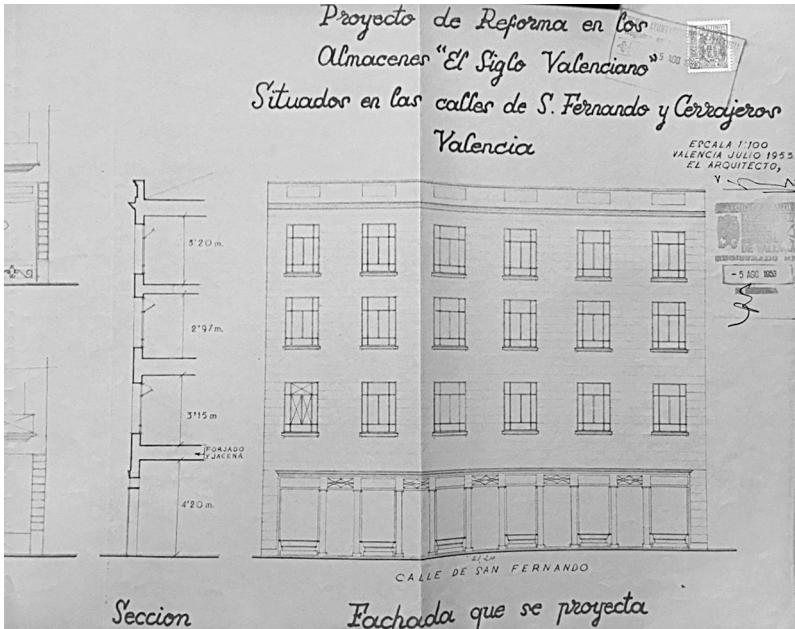 Proyecto de Reforma en los
Almacenes "El Siglo Valenciano"
Situados en las calles de S. Fernando y Cerrajeros
Valencia
ESCALA 1:100
VALENCIA JULIO 1953
EL ARQUITECTO,
- 5 AGO 1953
3'20 m.
2'97 m.
3'15 m
FORJADO
Y JACENA
4'20 m.
CALLE DE SAN FERNANDO
Seccion
Fachada que se proyecta